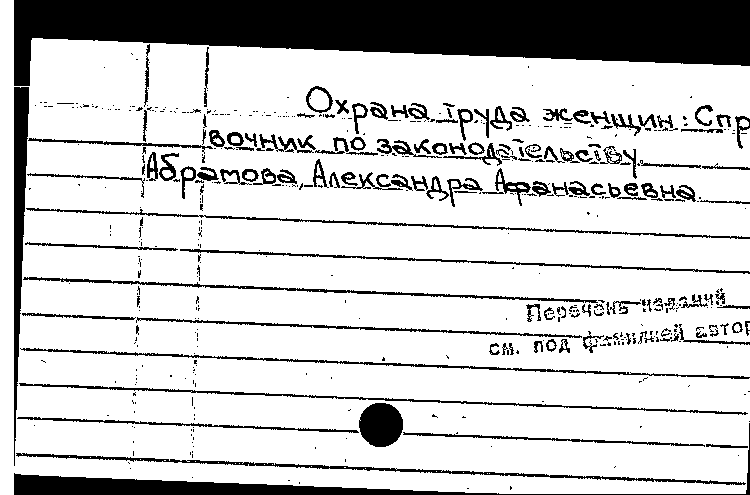 Охрана труда женщин: Спр
вочник по законодательству.
Абрамова, Александра Афанасьевна.
Перечень изданий
см. под фамилией автор